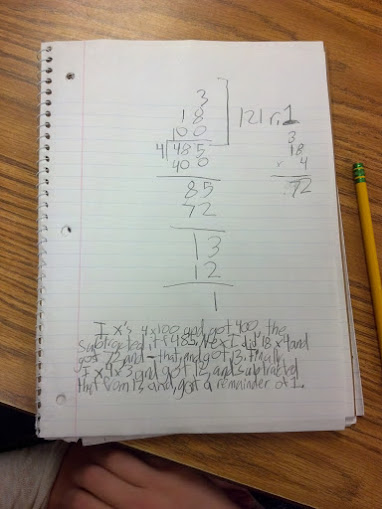 3
18
100
121 r.1
4 485
400
85
72
13
12
1
3
18
× 4
72
I x's 4x100 and got 400, the
subtracted it f 485. Next I did 18 x4 and
got 72 and - that and got 13. Finally
I x 4x3 and got 12 and subtracted
that from 13 and got a remainder of 1.